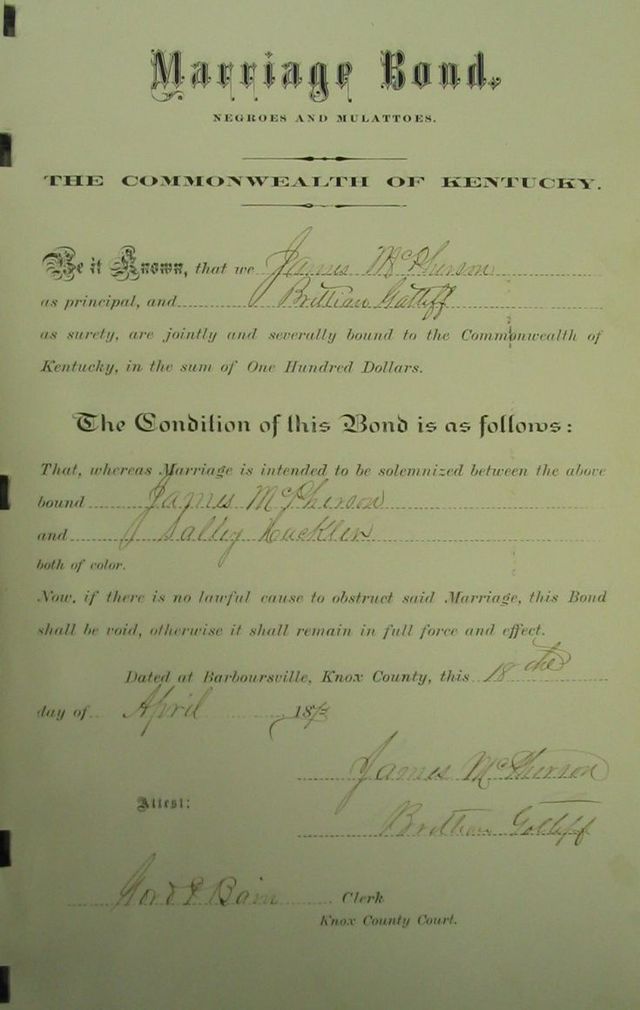 Marriage Bond.
NEGROES AND MULATTOES.
THE COMMONWEALTH OF KENTUCKY.
Be it Known, that we James McPherson
as principal, and Brittian Gatliff
as surety, are jointly and severally bound to the Commonwealth of
Kentucky, in the sum of One Hundred Dollars.
The Condition of this Bond is as follows:
That, whereas Marriage is intended to be solemnized between the above
bound James McPherson
and Salley
both of color.
Now, if there is no lawful cause to obstruct said Marriage, this Bond
shall be void, otherwise it shall remain in full force and effect.
Dated at Barboursville, Knox County, this 18th
day of April
James McPherson
Attest:
Brittian Gatliff
Bain Clerk
Knox County Court.